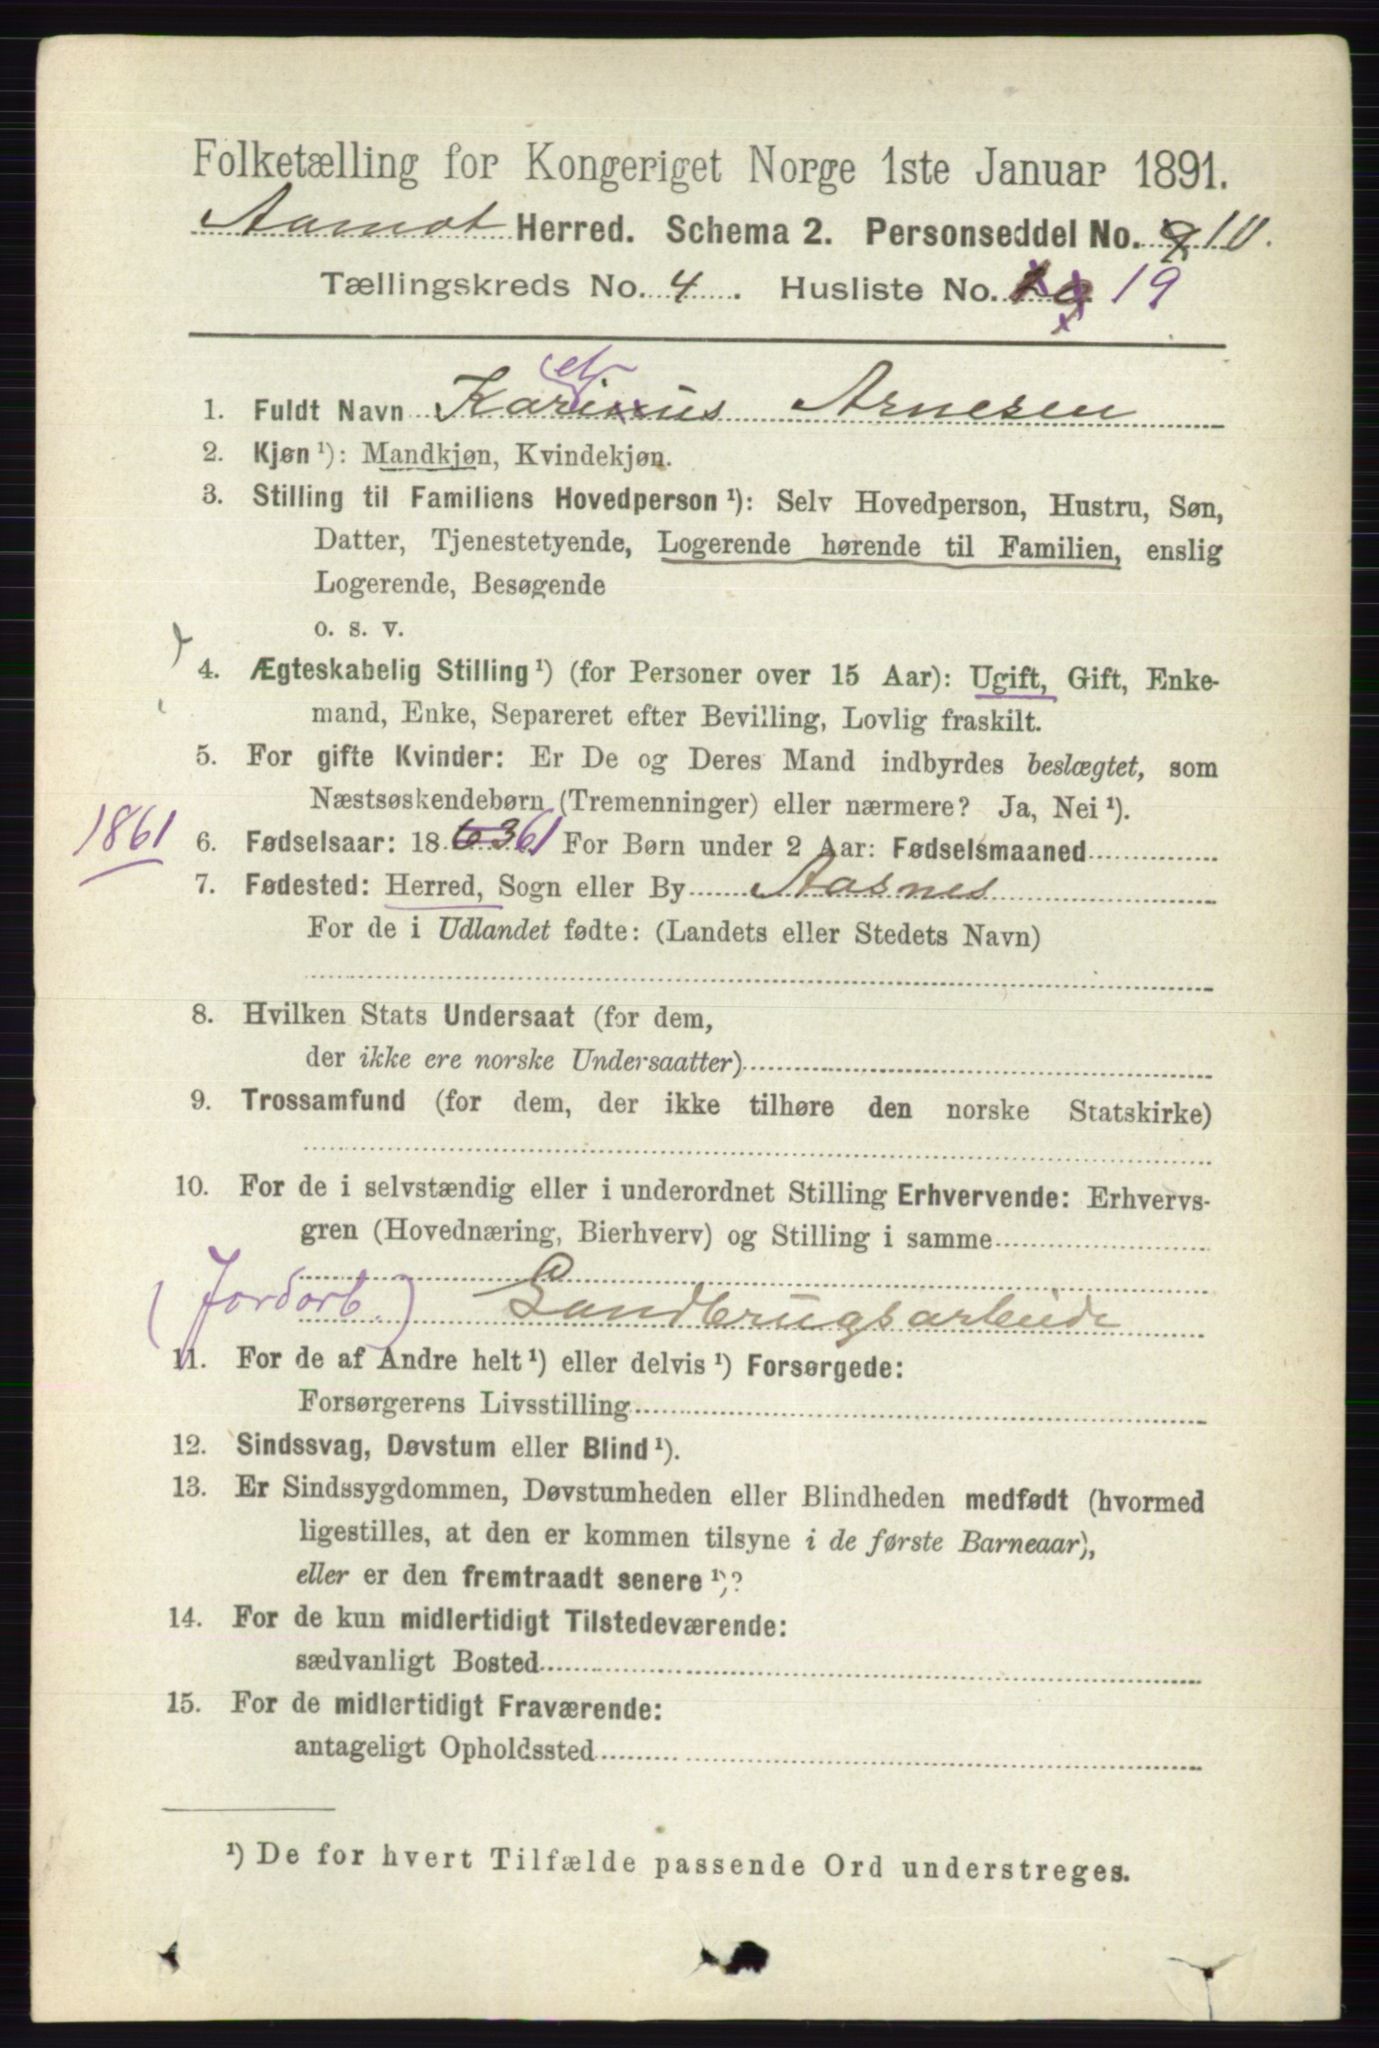 Folketælling for Kongeriget Norge 1ste Januar 1891.
Aamot Herred. Schema 2. Personseddel No. 9 10.
Tællingskreds No. 4. Husliste No. 19
1. Fuldt Navn Karinus Arnesen
2. Kjøn ¹): Mandkjøn, Kvindekjøn.
3. Stilling til Familiens Hovedperson ¹): Selv Hovedperson, Hustru, Søn,
Datter, Tjenestetyende, Logerende hørende til Familien, enslig
Logerende, Besøgende
o. s. v.
4. Ægteskabelig Stilling ¹) (for Personer over 15 Aar): Ugift, Gift, Enke-
mand, Enke, Separeret efter Bevilling, Lovlig fraskilt.
5. For gifte Kvinder: Er De og Deres Mand indbyrdes beslægtet, som
Næstsøskendebørn (Tremenninger) eller nærmere? Ja, Nei ¹).
1861
6. Fødselsaar: 18 63 61 For Børn under 2 Aar: Fødselsmaaned
7. Fødested: Herred, Sogn eller By Aasnes
For de i Udlandet fødte: (Landets eller Stedets Navn)
8. Hvilken Stats Undersaat (for dem,
der ikke ere norske Undersaatter)
9. Trossamfund (for dem, der ikke tilhøre den norske Statskirke)
10. For de i selvstændig eller i underordnet Stilling Erhvervende: Erhvervs-
gren (Hovednæring, Bierhverv) og Stilling i samme
(Jordarb.) Gandbrugsarbeide
11. For de af Andre helt ¹) eller delvis ¹) Forsørgede:
Forsørgerens Livsstilling
12. Sindssvag, Døvstum eller Blind ¹).
13. Er Sindssygdommen, Døvstumheden eller Blindheden medfødt (hvormed
ligestilles, at den er kommen tilsyne i de første Barneaar),
eller er den fremtraadt senere ¹)?
14. For de kun midlertidigt Tilstedeværende:
sædvanligt Bosted
15. For de midlertidigt Fraværende:
antageligt Opholdssted
¹) De for hvert Tilfælde passende Ord understreges.